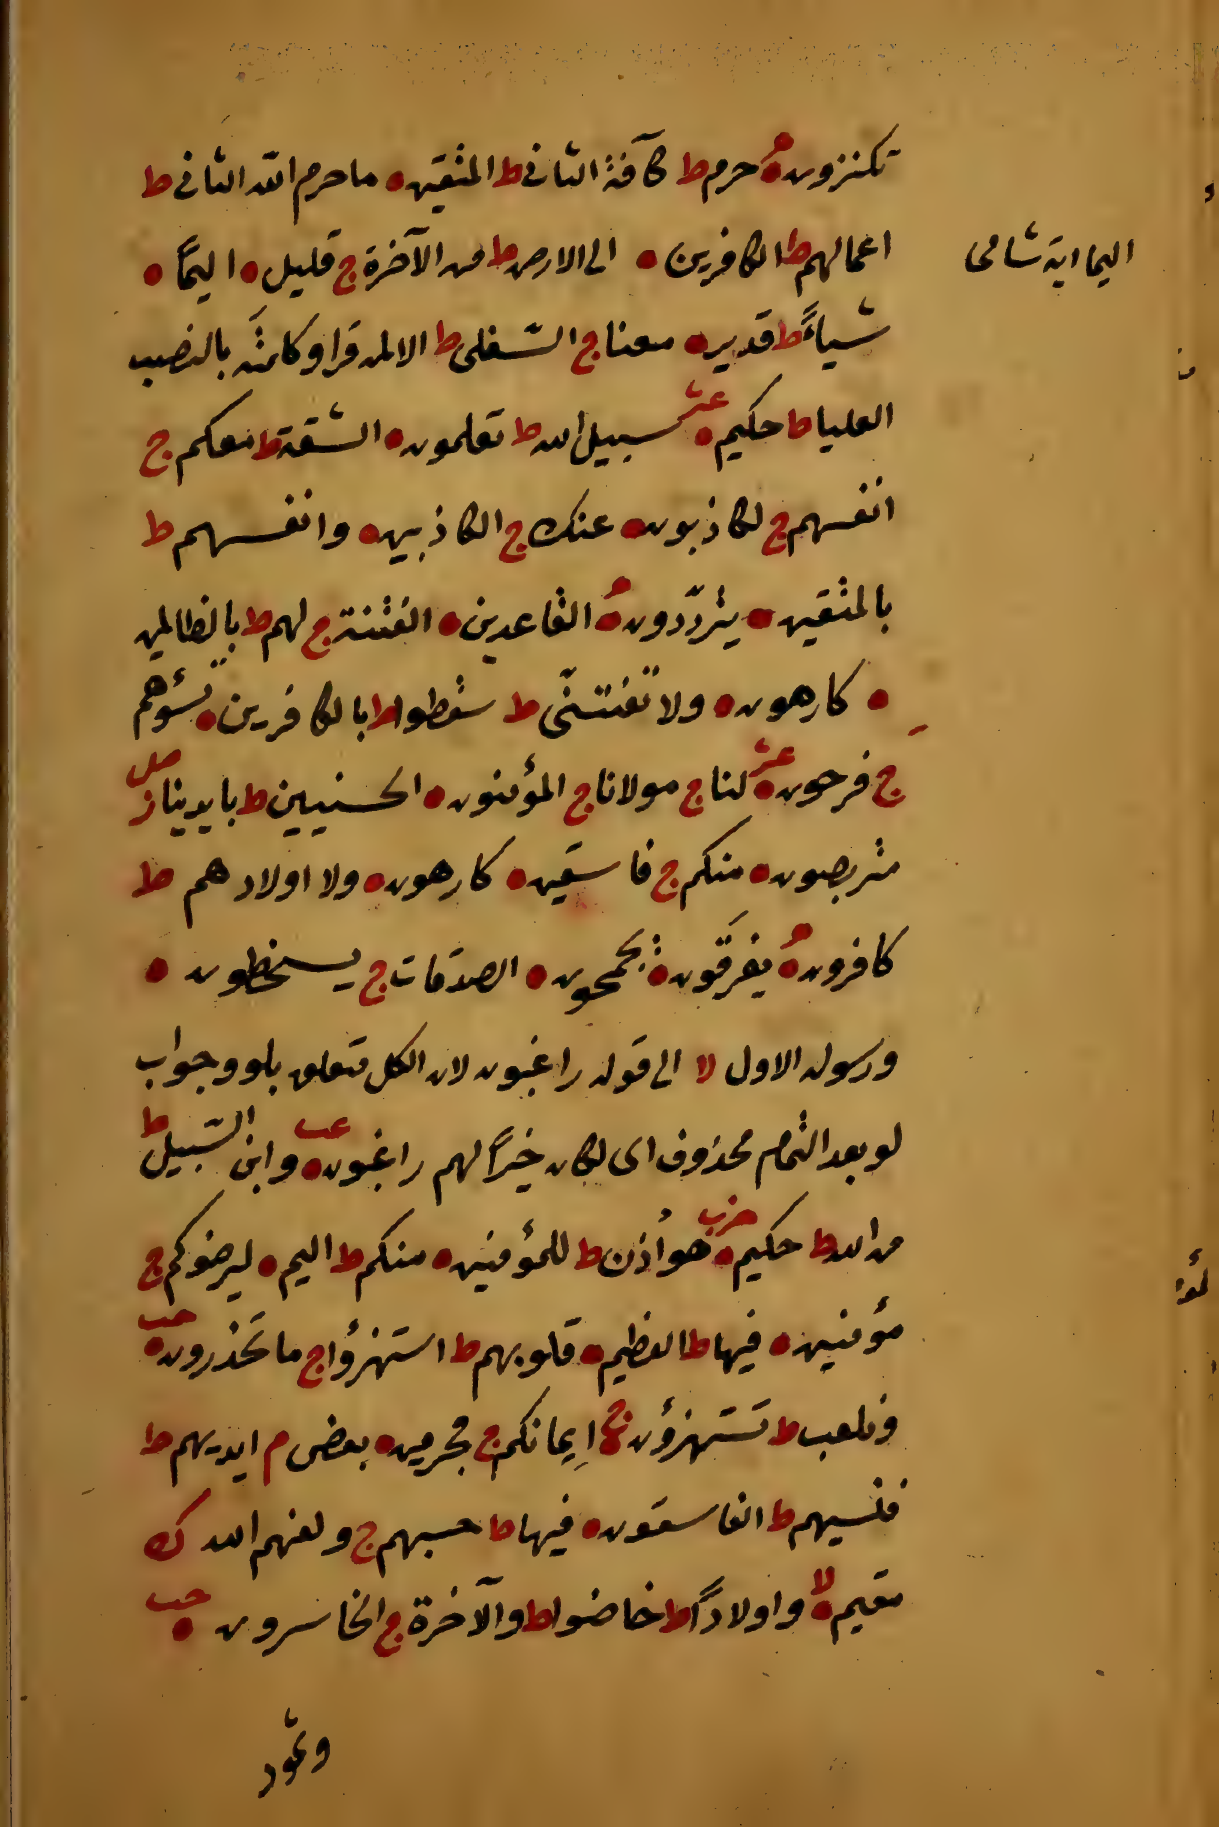 تكنزون ه حرم ط كآفة الثانى ط المتقين ه ما حرم الله الثانى ط
اعمالهم ط الكافرين ه الى الارض ط من الآخرة ج قليل ه اليمًا ه
اليما اية شامى
شياءً ط قدير ه معنا ج السّفلى ط الا لمن قراو كلمتَه بالنصب
العليا ط حكيم ه عشر سبيل الله ط تعلمون ه الشقة ط معكم ج
انفسهم ج لكاذبون ه عنك ج الكاذبين ه وانفسهم ط
بالمتقين ه يتردّدون ه القاعدين ه الفتنة ج لهم ط بالظالمين
ه كارهون ه ولا تفتنّى ط سقطوا ط بالكافرين ه تسؤهم
ج فرحون ه عشر لنا ج مولانا ج المؤمنون ه الحسنيين ط بايدينا ز صل
متربصون ه منكم ج فاسقين ه كارهون ه ولا اولادهم ط
كافرون ه يفرقون ه يجمحون ه الصدقات ج يسخطون ه
ورسوله الاول لا الى قوله راغبون لان الكل متعلق بلو وجواب
لو بعد التمام محذوف اى لكان خيرًا لهم راغبون ه عب وابن السّبيل ط
من الله ط حكيم ه حزب هو اُذن ط للمؤمنين ه منكم ط اليم ه ليرضوكم ج
مؤمنين ه فيها ط العظيم ه قلوبهم ط استهزؤا ج ما تحذرون ه حب
ونلعب ط تستهزؤن ه ايمانكم ج مجرمين ه بعض م ايديهم ط
فنسيهم ط الفاسقون ه فيها ط حسبهم ج ولعنهم الله ك
مقيم ه لا واولادًا ط خاضوا ط والآخرة ج الخاسرون ه حب
وثمود